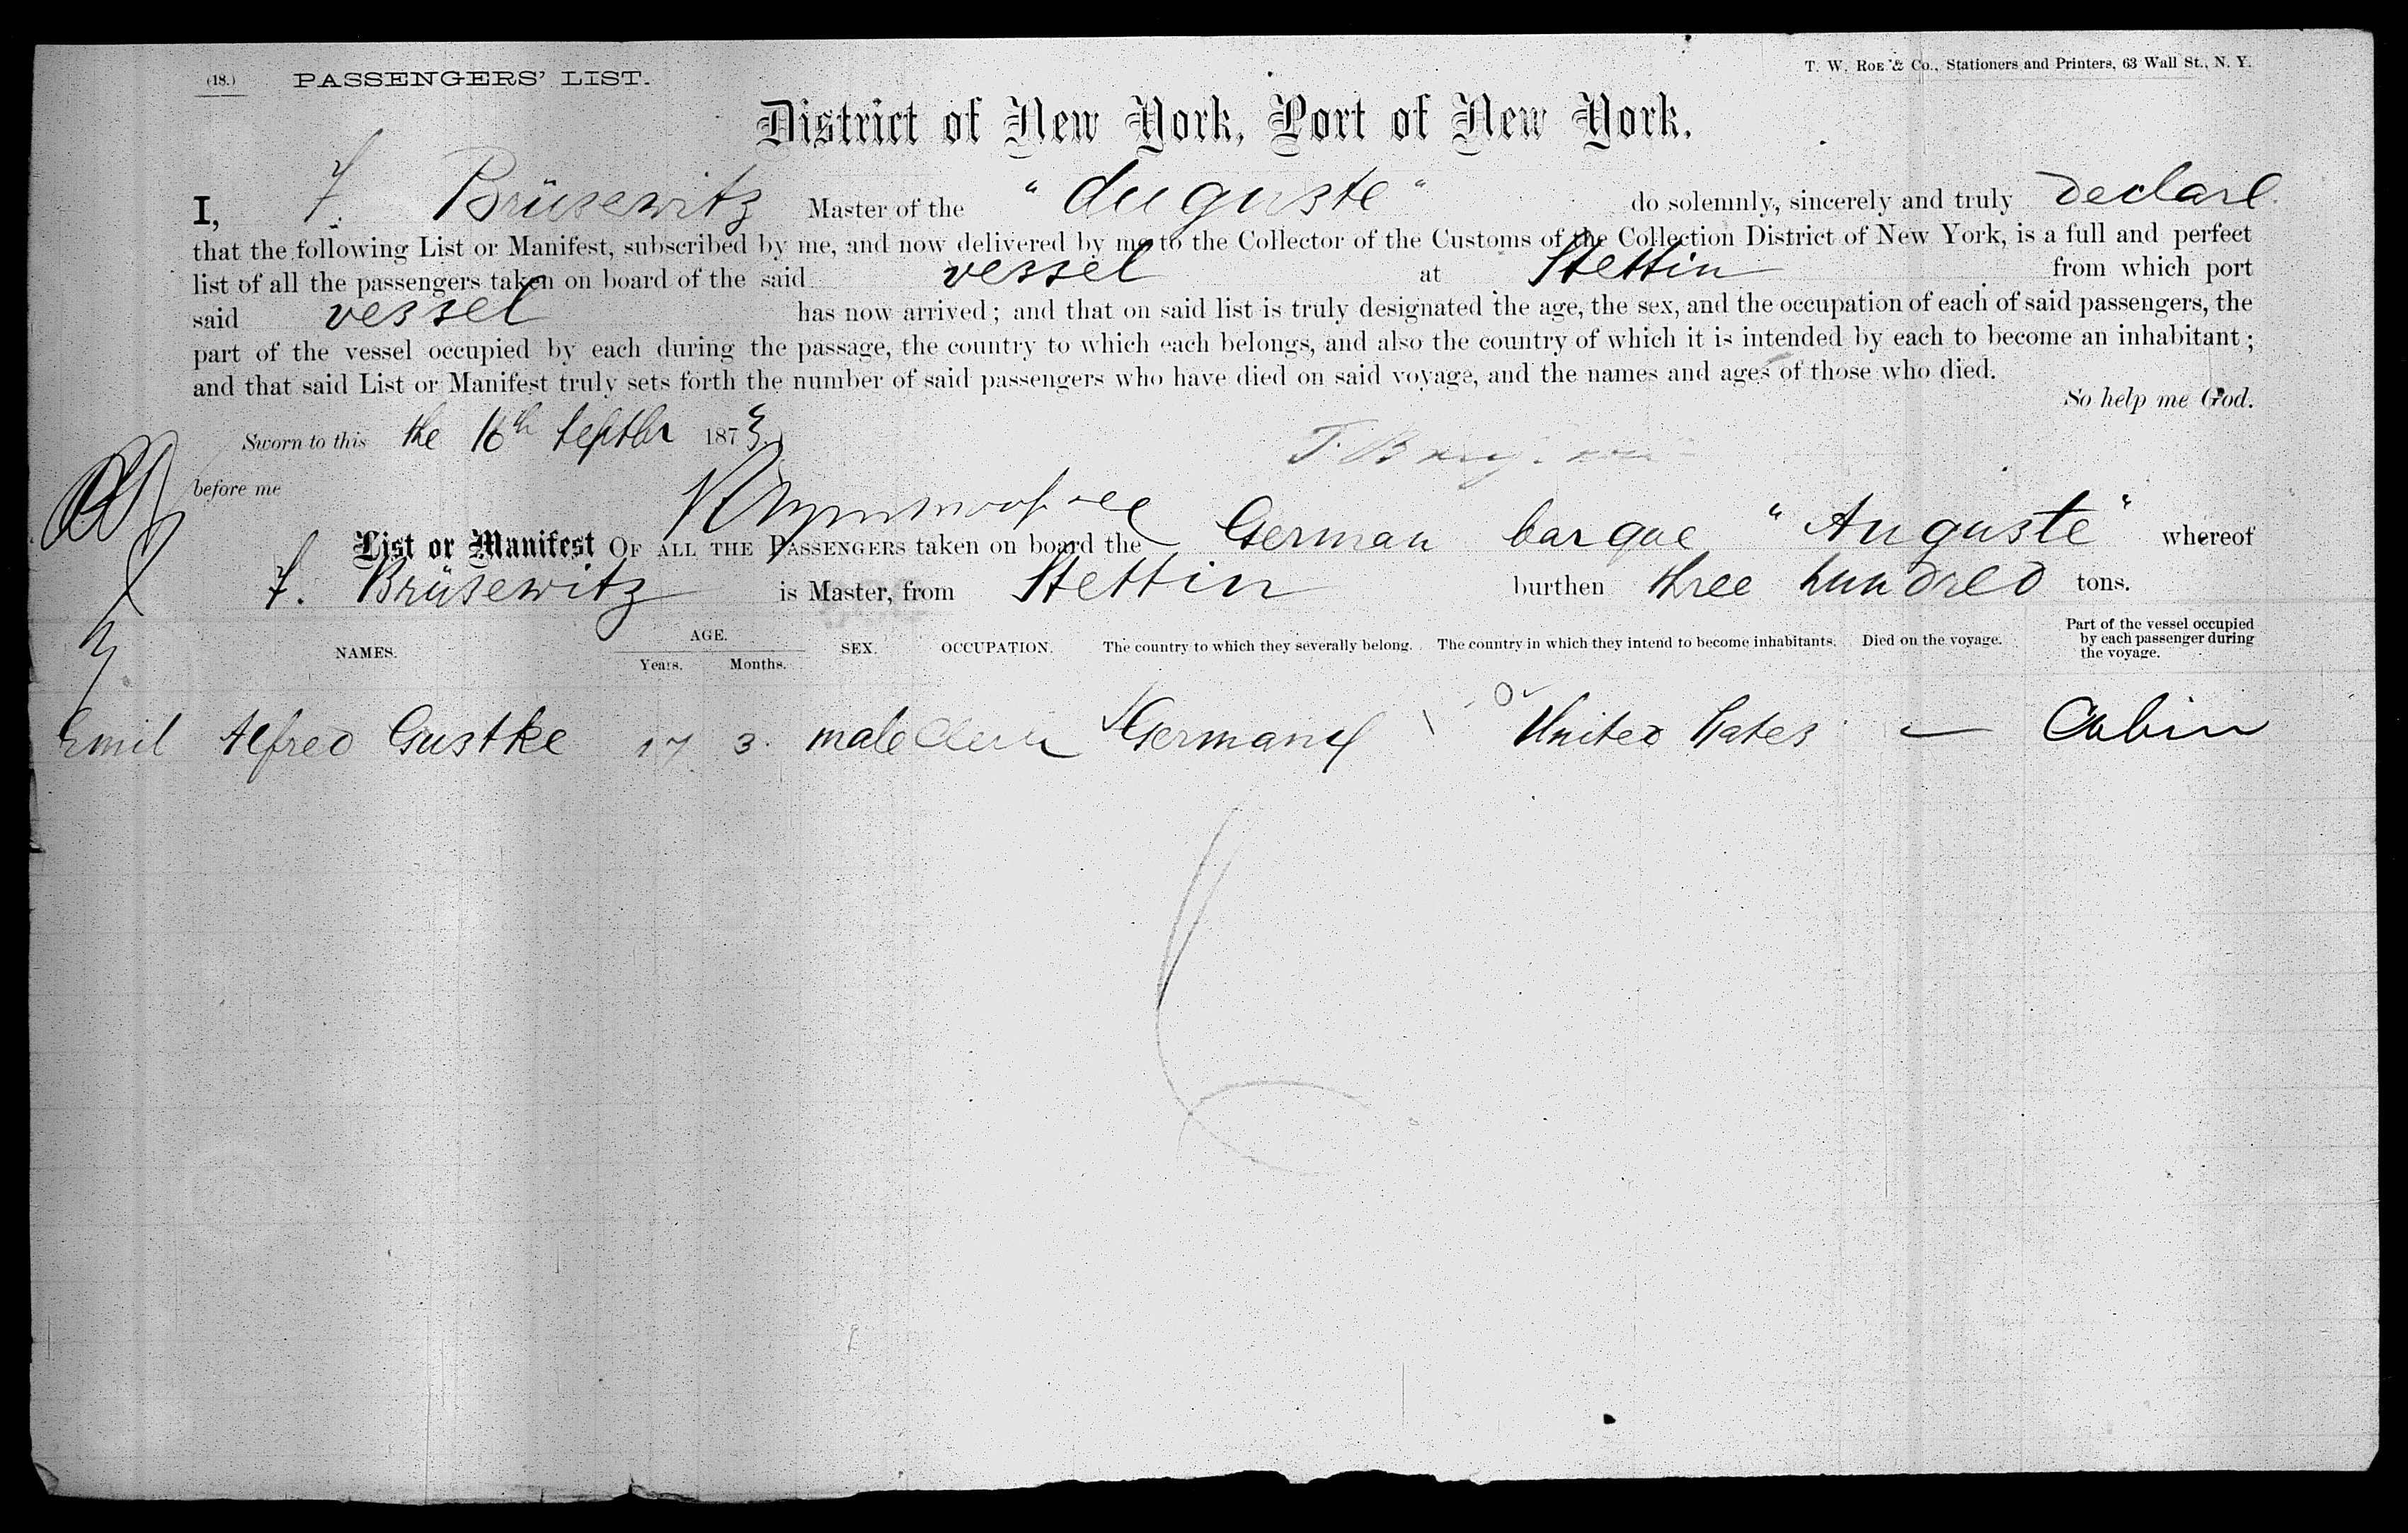 (18.) PASSENGERS' LIST.
T. W. ROE & Co., Stationers and Printers, 63 Wall St., N. Y.
District of New York, Port of New York.
I, F. Brüsewitz Master of the "Auguste" do solemnly, sincerely and truly declare
that the following List or Manifest, subscribed by me, and now delivered by me to the Collector of the Customs of the Collection District of New York, is a full and perfect
list of all the passengers taken on board of the said vessel at Stettin from which port
said vessel has now arrived; and that on said list is truly designated the age, the sex, and the occupation of each of said passengers, the
part of the vessel occupied by each during the passage, the country to which each belongs, and also the country of which it is intended by each to become an inhabitant;
and that said List or Manifest truly sets forth the number of said passengers who have died on said voyage, and the names and ages of those who died.
So help me God.
Sworn to this the 16th Septbr 1873
before me
List or Manifest OF ALL THE PASSENGERS taken on board the German barque "Auguste" whereof
F. Brüsewitz is Master, from Stettin burthen three hundred tons.
NAMES. AGE. Years. Months. SEX. OCCUPATION. The country to which they severally belong. The country in which they intend to become inhabitants. Died on the voyage. Part of the vessel occupied by each passenger during the voyage.
Emil Alfred Gustke 17 3. male Germany United States — Cabin